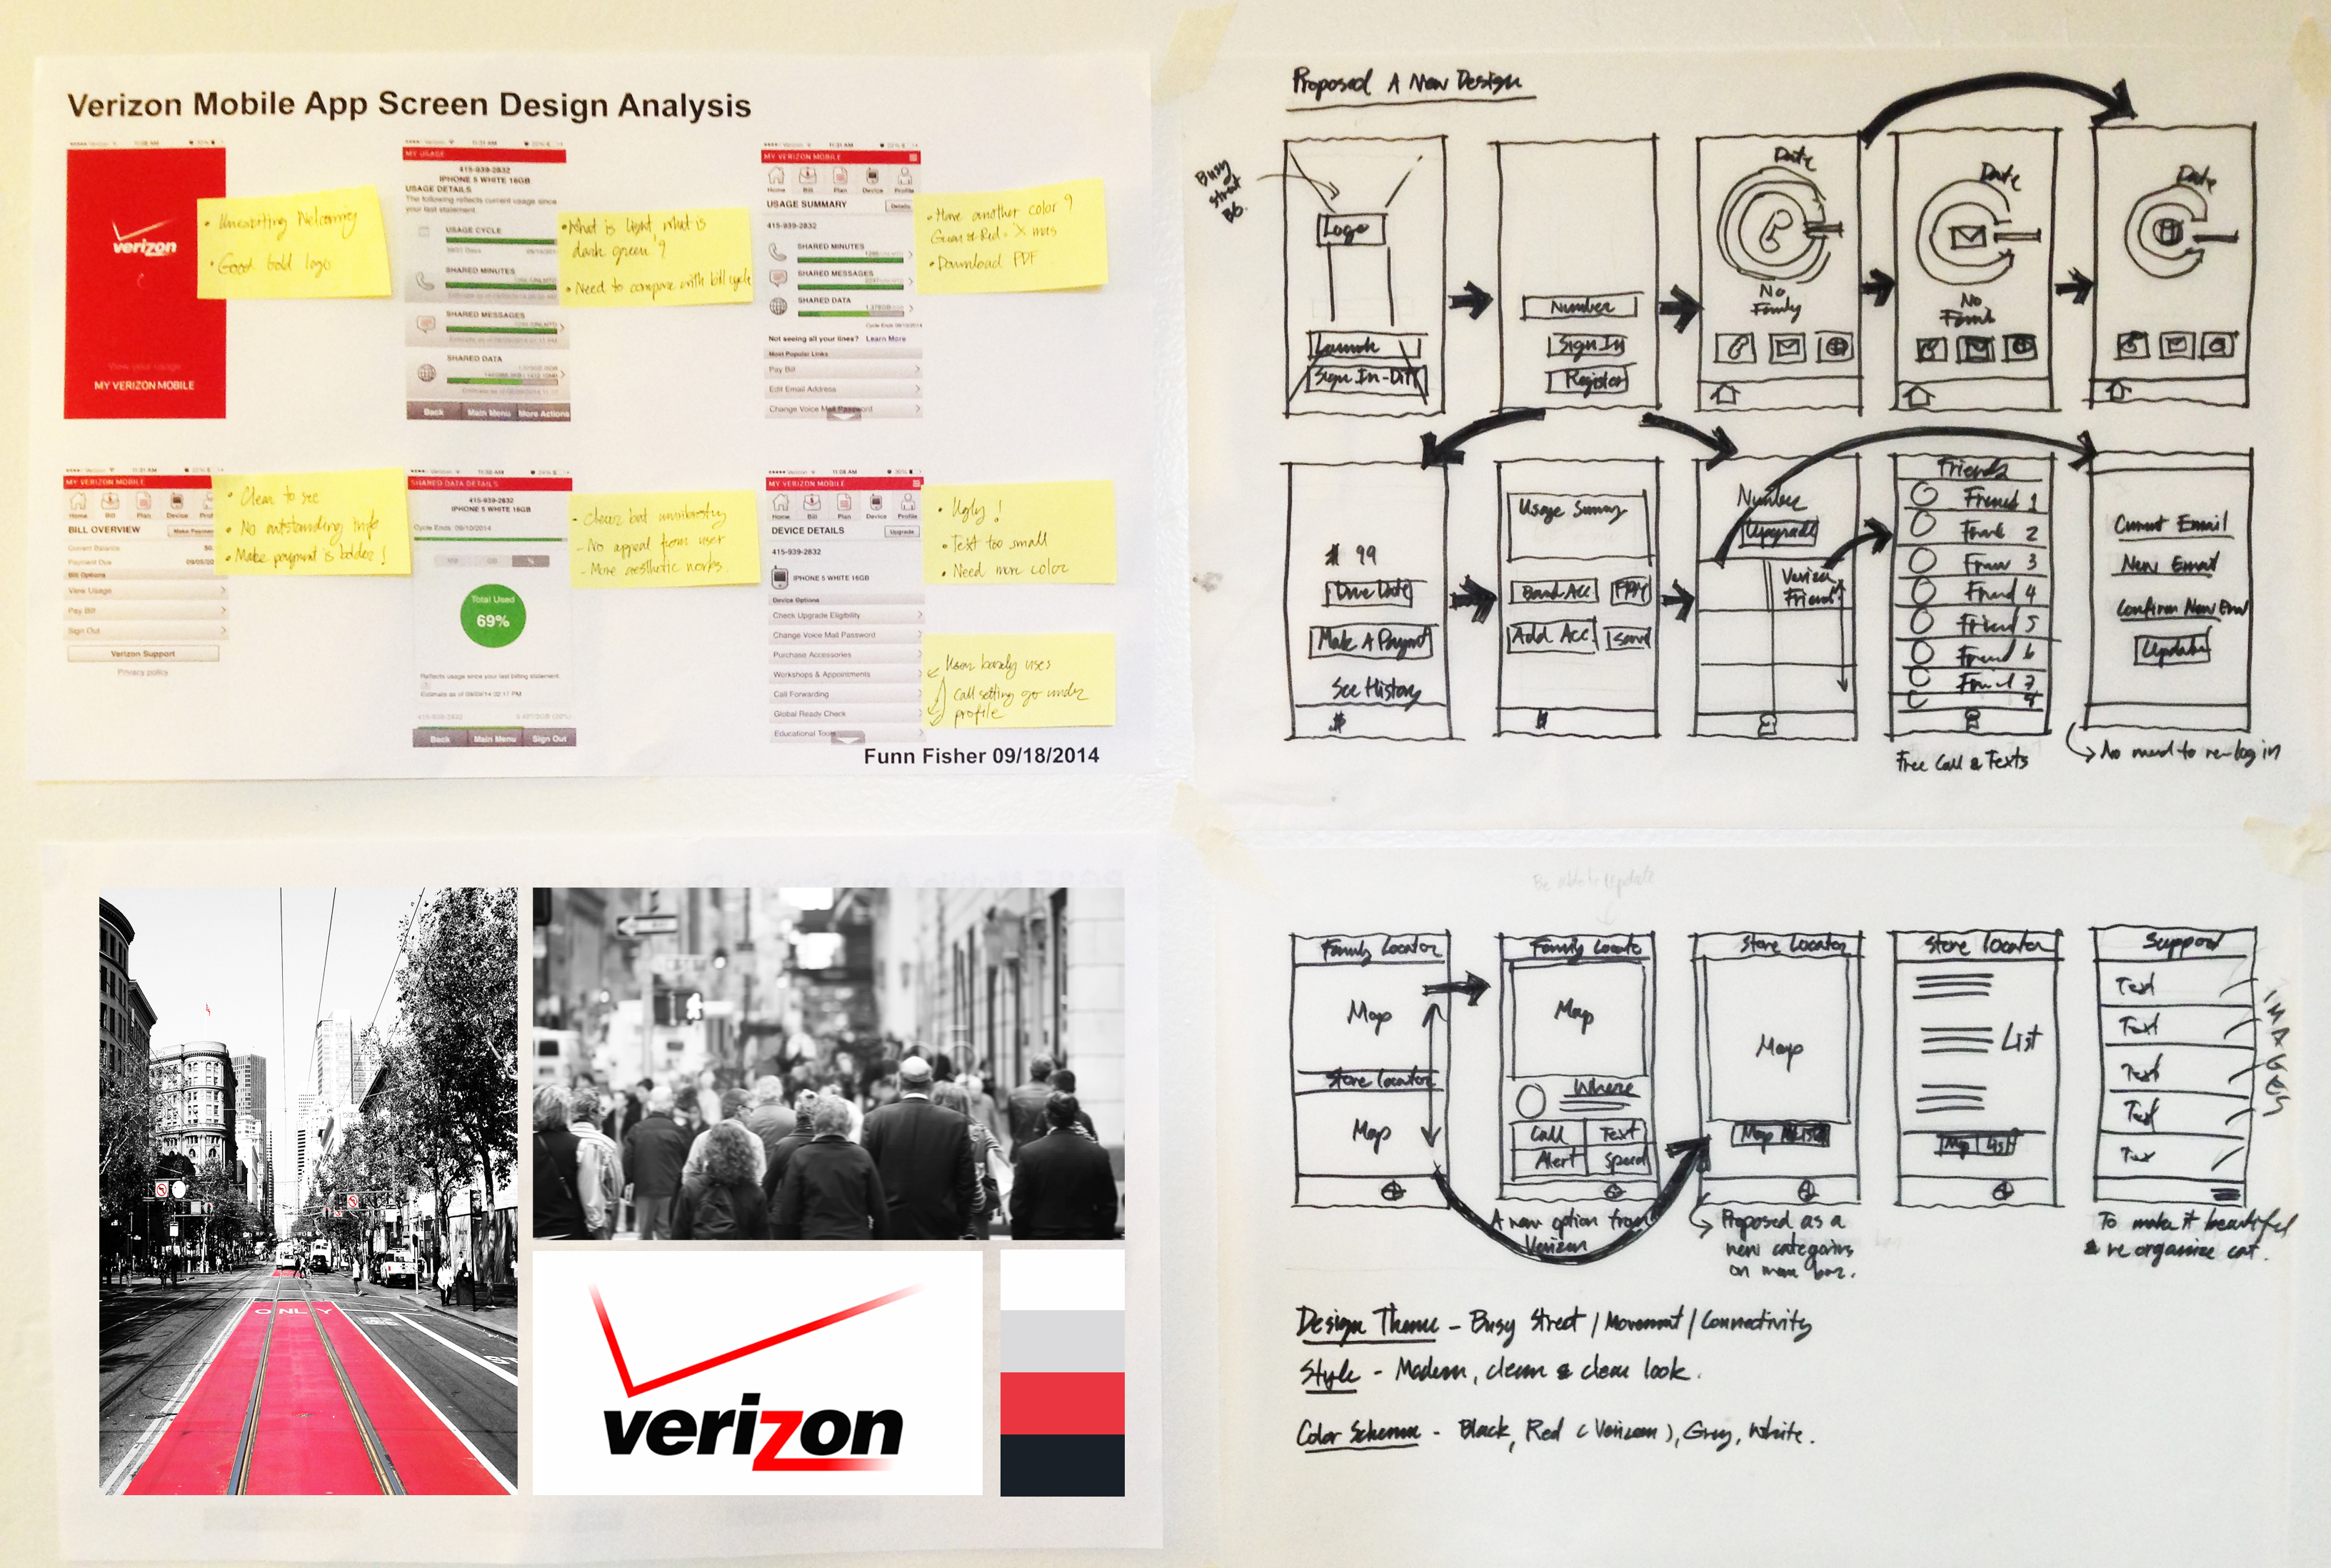 Verizon Mobile App Screen Design Analysis
verizon
View your usage
MY VERIZON MOBILE
• Unexciting Welcoming
• Good bold logo
11:31 AM
MY USAGE
415-939-2832
IPHONE 5 WHITE 16GB
USAGE DETAILS
The following reflects current usage since
your last statement.
USAGE CYCLE
SHARED MINUTES
SHARED MESSAGES
SHARED DATA
Back Main Menu More Actions
• What is light, what is
dark green?
• Need to compare with bill cycle
11:31 AM
MY VERIZON MOBILE
Home Bill Plan Device Profile
USAGE SUMMARY Details
415-939-2832
SHARED MINUTES
SHARED MESSAGES
SHARED DATA
Cycle Ends 09/10/2014
Not seeing all your lines? Learn More
Most Popular Links
Pay Bill
Edit Email Address
Change Voice Mail Password
• Have another color?
Green & Red = X mas
• Download PDF
11:31 AM
MY VERIZON MOBILE
Home Bill Plan Device
BILL OVERVIEW Make Payment
Current Balance
Payment Due
Bill Options
View Usage
Pay Bill
Sign Out
Verizon Support
Privacy policy
• Clear to see
• No outstanding info
• Make payment is bolder!
SHARED DATA DETAILS
415-939-2832
IPHONE 5 WHITE 16GB
Cycle Ends: 09/10/2014
Total Used
69%
Reflects usage since your last billing statement.
Back Main Menu Sign Out
- No appeal from user
- More aesthetic works.
11:08 AM
MY VERIZON MOBILE
Home Bill Plan Device Profile
DEVICE DETAILS Upgrade
415-939-2832
IPHONE 5 WHITE 16GB
Device Options
Check Upgrade Eligibility
Change Voice Mail Password
Purchase Accessories
Workshops & Appointments
Call Forwarding
Global Ready Check
Educational Tools
• Ugly!
• Text too small
• Need more color
User barely uses
Call setting go under
profile
Funn Fisher 09/18/2014
Proposed A New Design
Busy
street
BG.
Logo
Launch
Number
Sign In
Register
Date
No
Family
Date
No
Date
$ 99
Due Date
Make A Payment
See History
$
Usage Summary
Bank Acc
Add Acc
Save
Number
Upgrade
Verizon
Friend
Friends
Friend 1
Friend 2
Friend 3
Friend 4
Friend 5
Friend 6
Friend 7
Free Call & Texts
Current Email
New Email
Confirm New Email
Update
No need to re-log in
ONLY
verizon
Be able to Update
Family Locator
Map
Store Locator
Map
Family Locator
Map
Where
Call Text
Alert Speed
A new option from
Verizon
Store Locator
Map
Map List
Proposed as a
new categories
on menu bar.
Store Locator
List
Map List
Support
Text
Text
Text
Text
Text
IMAGES
To make it beautiful
& re organize cat.
Design Theme - Busy Street / Movement / Connectivity
Style - Modern, clean & clear look.
Color Scheme - Black, Red (Verizon), Grey, White.